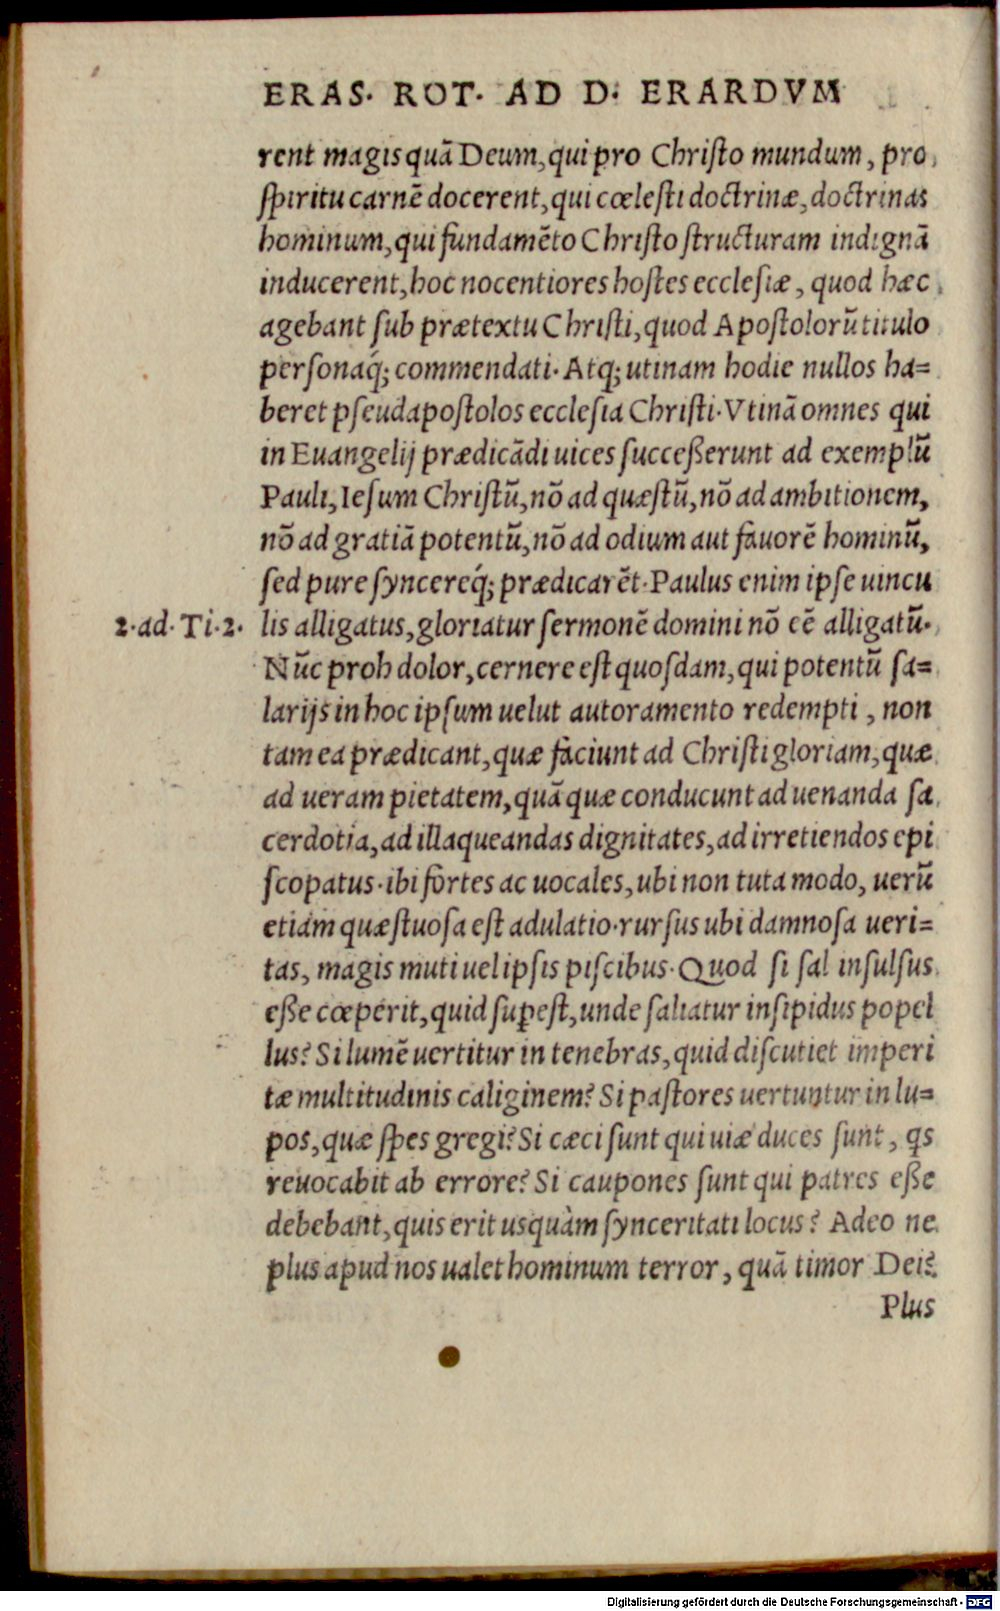 ERAS. ROT. AD D. ERARDVM
rent magis quã Deum, qui pro Christo mundum, pro
spiritu carnẽ docerent, qui cœlesti doctrinæ, doctrinas
hominum, qui fundamẽto Christo structuram indignã
inducerent, hoc nocentiores hostes ecclesiæ, quod hæc
agebant sub prætextu Christi, quod Apostolorũ titulo
personaq́; commendati. Atq; utinam hodie nullos ha=
beret pseudapostolos ecclesia Christi. Vtinã omnes qui
in Euangelij prædicãdi uices successerunt ad exemplũ
Pauli, Iesum Christũ, nõ ad quæstũ, nõ ad ambitionem,
nõ ad gratiã potentũ, nõ ad odium aut fauorẽ hominũ,
sed pure syncereq́; prædicarẽt. Paulus enim ipse uincu
2. ad. Ti. 2. lis alligatus, gloriatur sermonẽ domini nõ eẽ alligatũ.
Nũc proh dolor, cernere est quosdam, qui potentũ sa=
larijs in hoc ipsum uelut autoramento redempti, non
tam ea prædicant, quæ faciunt ad Christi gloriam, quæ
ad ueram pietatem, quã quæ conducunt ad uenanda sa
cerdotia, ad illaqueandas dignitates, ad irretiendos epi
scopatus. ibi fortes ac uocales, ubi non tuta modo, uerũ
etiam quæstuosa est adulatio. rursus ubi damnosa ueri=
tas, magis muti uel ipsis piscibus. Quod si sal insulsus
esse cœperit, quid suꝑest, unde saliatur insipidus popel
lus? Si lumẽ uertitur in tenebras, quid discutiet imperi
tæ multitudinis caliginem? Si pastores uertuntur in lu=
pos, quæ spes gregi? Si cæci sunt qui uiæ duces sunt, qs
reuocabit ab errore? Si caupones sunt qui patres esse
debebant, quis erit usquàm synceritati locus? Adeo ne
plus apud nos ualet hominum terror, quã timor Dei?
Plus
Digitalisierung gefördert durch die Deutsche Forschungsgemeinschaft - DFG